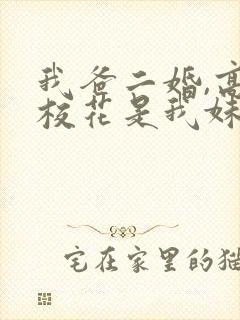 我爸二婚,高
校花是我妹
宅在家里的猫